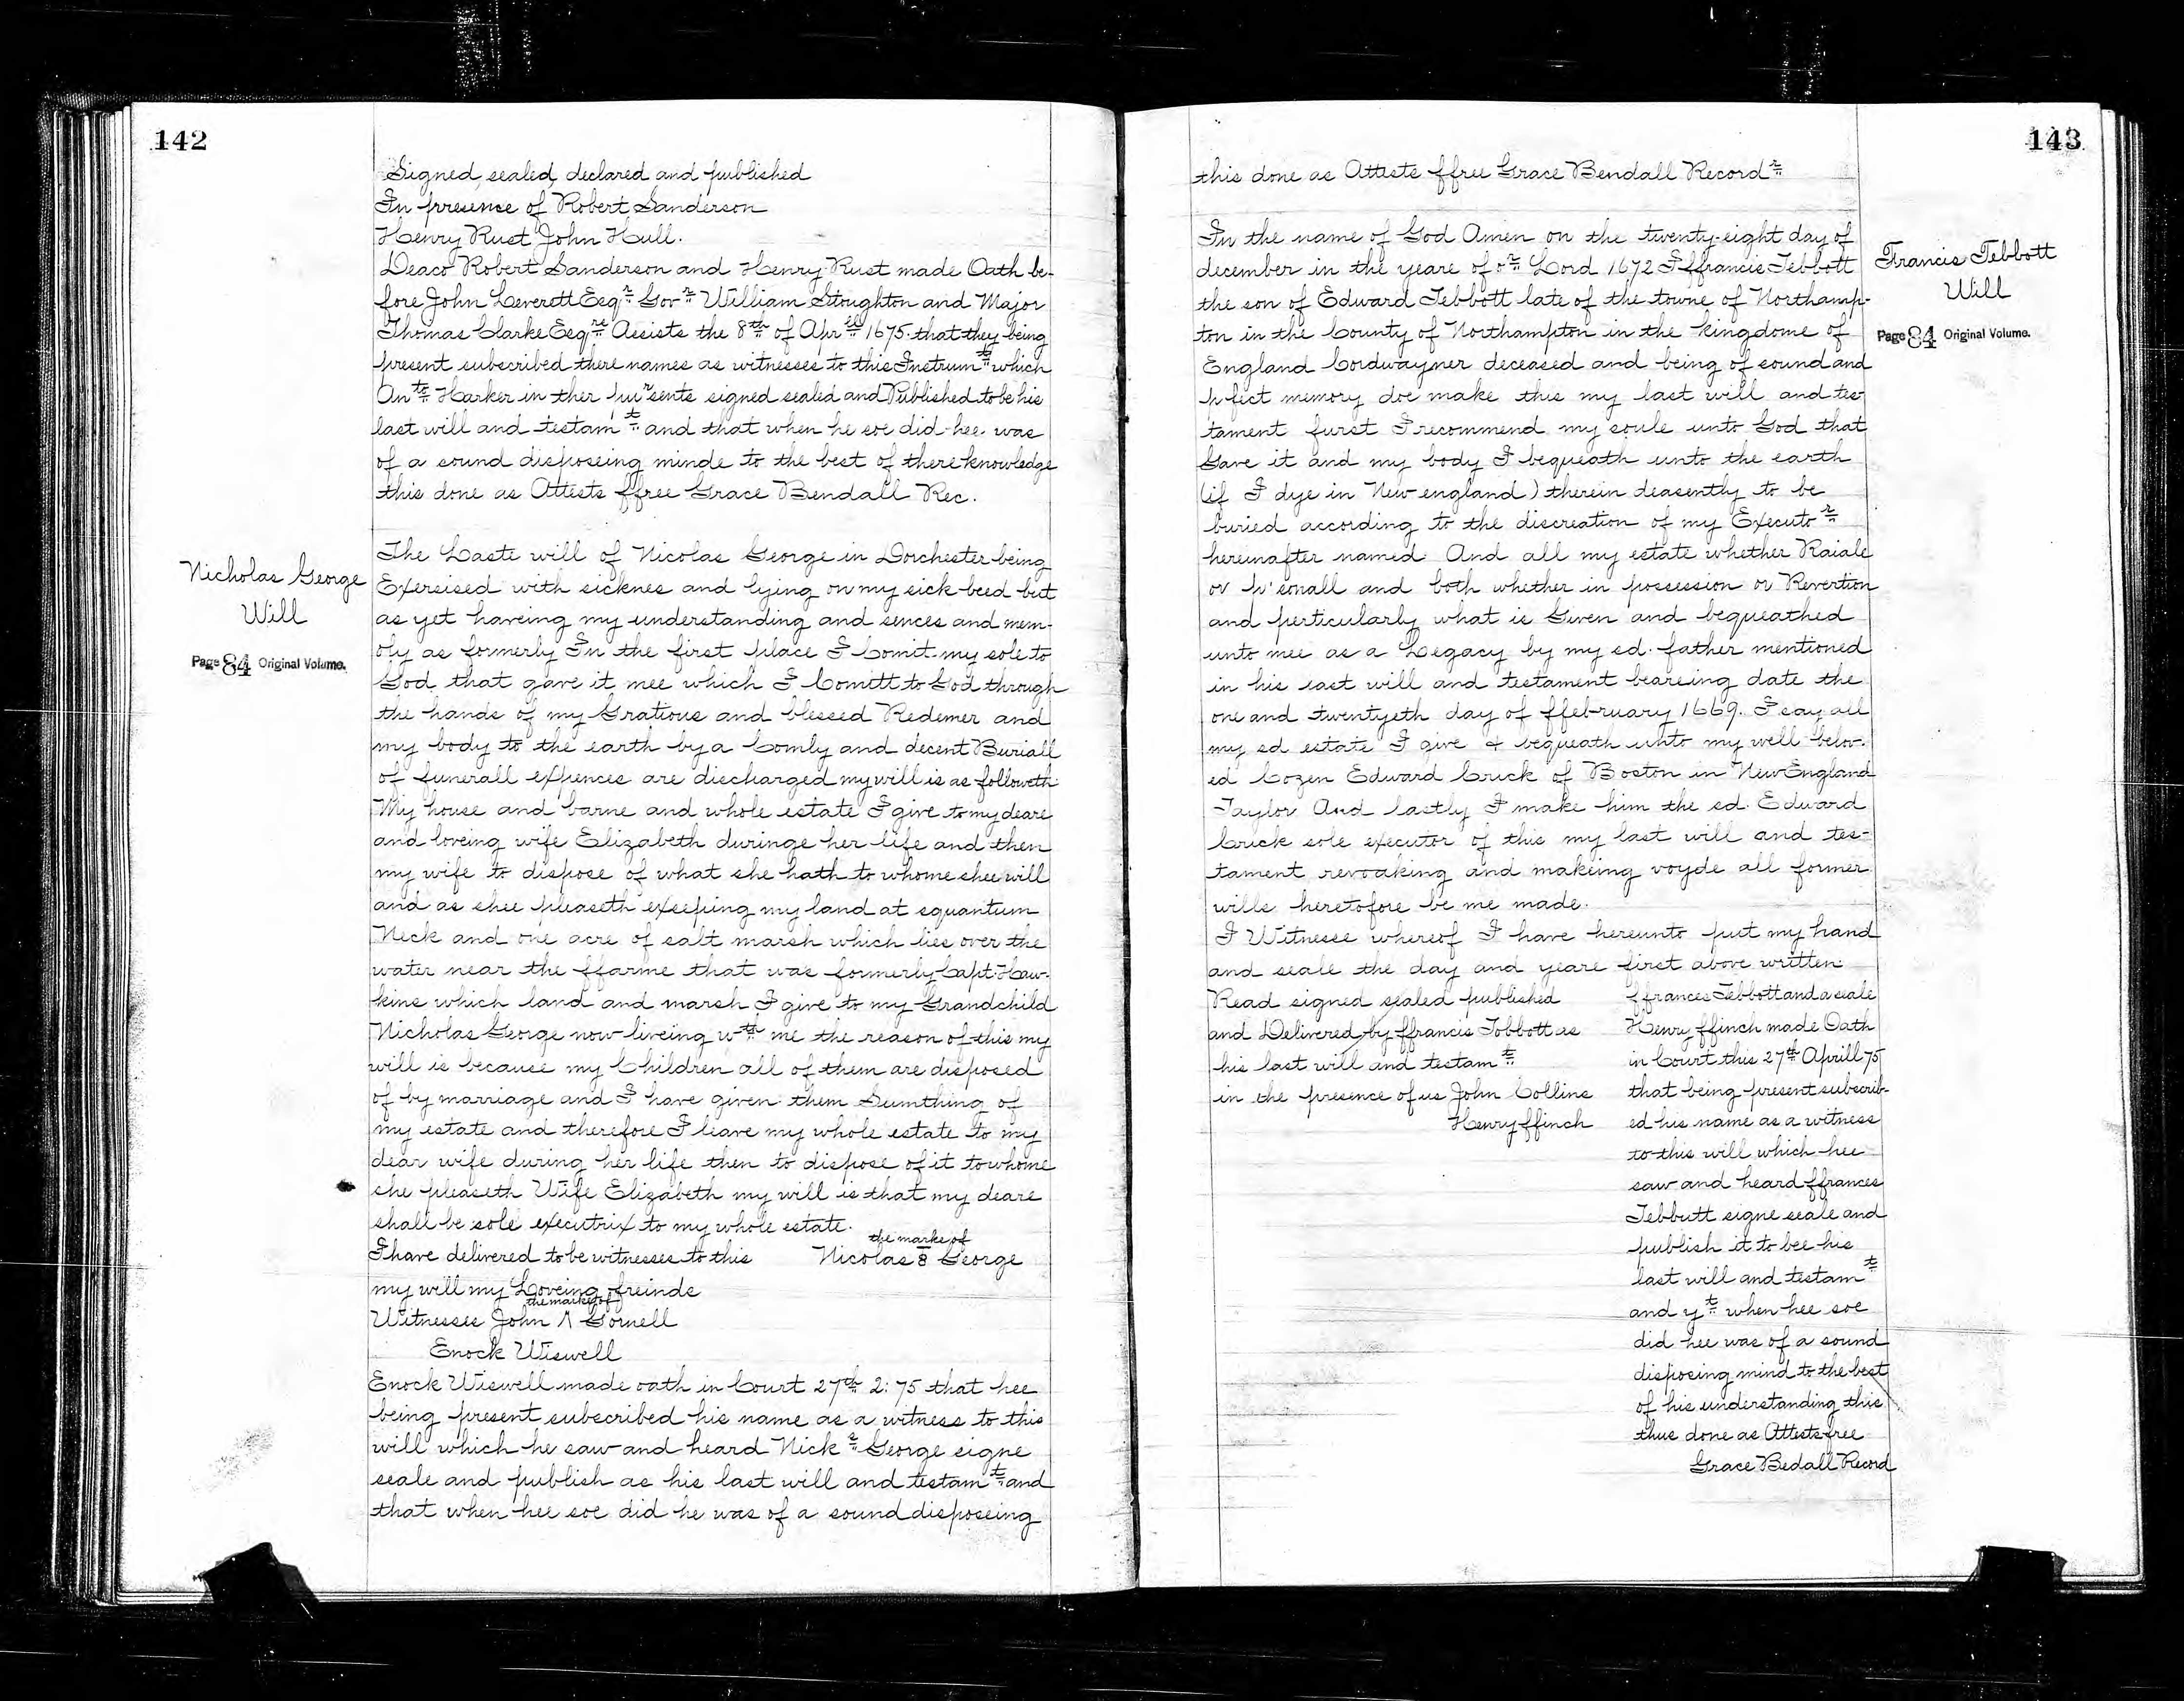 142
Signed, sealed, declared and published
In presence of Robert Sanderson
Henry Rust John Hull.
Deaco Robert Sanderson and Henry Rust made Oath be-
fore John Leverett Esqr Govr William Stoughton and Major
Thomas Clarke Esqre Assists the 8th of Aprill 1675. that they being
present subscribed there names as witnesses to this Instrumt which
Anto Harker in ther pursents signed sealed and Published to be his
last will and testamt and that when he soe did hee was
of a sound disposeing minde to the best of there knowledge
this done as Attests ffree Grace Bendall Rec.
Nicholas George
Will
Page 84 Original Volume.
The Laste will of Nicolas George in Dorchester being
Exersised with sicknes and lying on my sick beed but
as yet haveing my understanding and sences and mem-
oly as formerly In the first place I Comit my sole to
God that gave it mee which I Comitt to God through
the hands of my Gratious and blessed Redemer and
my body to the earth by a Comly and decent Buriall
of funerall expences are discharged my will is as followeth
My house and barne and whole estate I give to my deare
and loveing wife Elizabeth duringe her life and then
my wife to dispose of what she hath to whome shee will
and as shee pleaseth exseping my land at squantum
Neck and one acre of salt marsh which lies over the
water near the ffarme that was formerly Capt. Haw-
kins which land and marsh I give to my Grandchild
Nicholas George now liveing wth me the reason of this my
will is because my Children all of them are disposed
of by marriage and I have given them Sumthing of
my estate and therefore I leave my whole estate to my
dear wife during her life then to dispose of it to whome
she pleaseth Wife Elizabeth my will is that my deare
shall be sole executrix to my whole estate.
the marke of
I have delivered to be witnesses to this Nicolas 8 George
my will my Loveing freinds
the marke of
Witnesses John Λ Gornell
Enock Wiswell
Enock Wiswell made oath in Court 27th 2: 75 that hee
being present subscribed his name as a witness to this
will which he saw and heard Nicks George signe
seale and publish as his last will and testamt and
that when hee soe did he was of a sound disposeing
143
this done as Attests ffree Grace Bendall Recordr
Francis Tebbott
Will
Page 84 Original Volume.
In the name of God Amen on the twenty-eight day of
december in the yeare of or Lord 1672 I ffrancis Tebbott
the son of Edward Tebbott late of the towne of Northamp-
ton in the County of Northampton in the kingdome of
England Cordwayner deceased and being of sound and
pfect memory doe make this my last will and tes-
tament furst I recommend my soule unto God that
Gave it and my body I bequeath unto the earth
(if I dye in New england) therein deasently to be
buried according to the discreation of my Executor
hereunafter named And all my estate whether Raiale
or p'sonall and both whether in possession or Revertion
and perticularly what is Given and bequeathed
unto mee as a Legacy by my sd. father mentioned
in his last will and testament beareing date the
one and twentyeth day of ffebruary 1669. I say all
my sd estate I give & bequeath unto my well belov-
ed Cozen Edward Crick of Boston in New England
Taylor And lastly I make him the sd. Edward
Crick sole executor of this my last will and tes-
tament revoaking and makeing voyde all former
wills heretofore be me made.
I Witnesse whereof I have hereunto put my hand
and seale the day and yeare first above written
Read signed sealed published
and Delivered by ffrancis Tobbott as
his last will and testamt
in the presence of us John Colline
Henry ffinch
ffrances Tebbott and a seale
Henry ffinch made Oath
in Court this 27th Aprill 75
that being present subscrib-
ed his name as a witness
to this will which hee
saw and heard ffrances
Tebbutt signe seale and
publish it to bee his
last will and testamt
and yt when hee soe
did hee was of a sound
disposing mind to the best
of his understanding this
thus done as Attests free
Grace Bedall Record